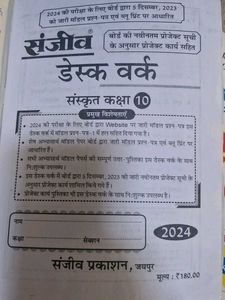 2024 की परीक्षा के लिए बोर्ड द्वारा 5 दिसम्बर, 2023
को जारी मॉडल प्रश्न-पत्र एवं ब्लू प्रिंट पर आधारित
संजीव
®
बोर्ड की नवीनतम प्रोजेक्ट सूची
के अनुसार प्रोजेक्ट कार्य सहित
डेस्क वर्क
संस्कृत कक्षा 10
प्रमुख विशेषताएं
2024 की परीक्षा के लिए बोर्ड द्वारा Website पर जारी मॉडल प्रश्न-पत्र इस
डेस्क वर्क में मॉडल प्रश्न-पत्र-1 में हल सहित दिया गया है।
शेष अभ्यासार्थ मॉडल पेपर बोर्ड द्वारा जारी मॉडल प्रश्न-पत्र एवं ब्लू प्रिंट पर
आधारित हैं।
सभी अभ्यासार्थ मॉडल पेपर्स की सम्पूर्ण उत्तर-पुस्तिका इस डेस्क वर्क के साथ
निःशुल्क उपलब्ध है।
इस डेस्क वर्क में बोर्ड द्वारा 5 दिसम्बर, 2023 को जारी नवीनतम प्रोजेक्ट सूची के
अनुसार प्रोजेक्ट कार्य शामिल किये गये हैं।
प्रोजेक्ट कार्य पुस्तिका भी इस डेस्क वर्क के साथ निःशुल्क उपलब्ध है।
नाम
कक्षा सेक्शन
2024
संजीव प्रकाशन, जयपुर
मूल्य : ₹180.00